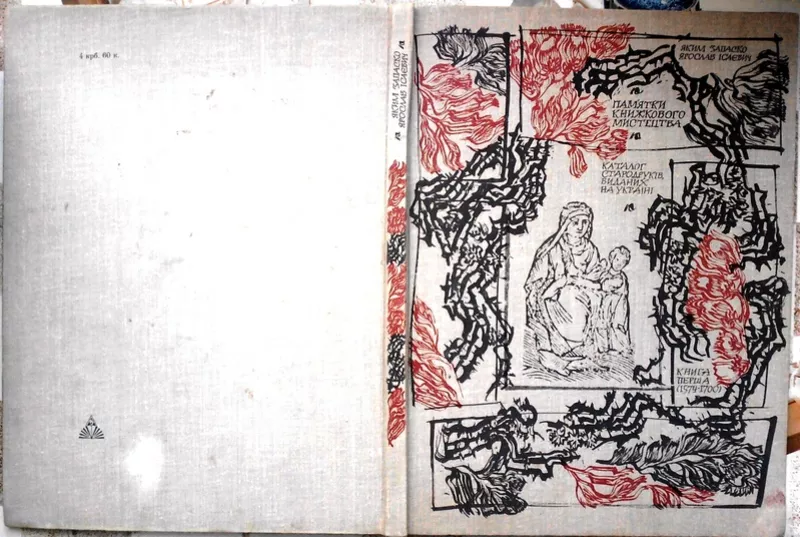 4 крб. 60 к.
ЯКИМ ЗАПАСКО
ЯРОСЛАВ ІСАЄВИЧ
ЯКИМ ЗАПАСКО
ЯРОСЛАВ ІСАЄВИЧ
ПАМЯТКИ
КНИЖКОВОГО
МИСТЕЦТВА
КАТАЛОГ
СТАРОДРУКІВ,
ВИДАНИХ
НА УКРАЇНІ
КНИГА
ПЕРША
(1574-1700)